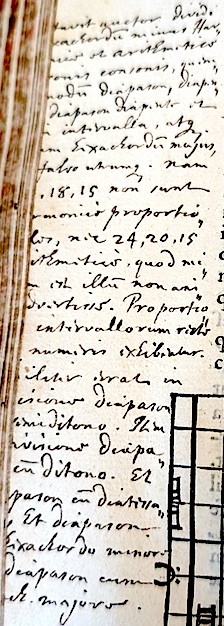 tavit auctor divid.
exachordũ minus Har
nicè et arithmeticè
consonis, quin
modũ diapason, diapen
diapason diapente et
intervalla, utq
m Exachordũ majus,
falso utrumq. nam
, 18, 15 non sunt
rmonicè proportio
les, nec 24, 20, 15
ithmeticè, quod mi
m est illũ non ani
dvertisse. Proportio
intervallorum rectè
numeris exhibentur.
iliter errat in
diapason
miditono. Item
ivisione diapa
cũ ditono. Et
pason cũ diatessa
, Et diapason
Exachordo minore
diapason cum
ch. majore.